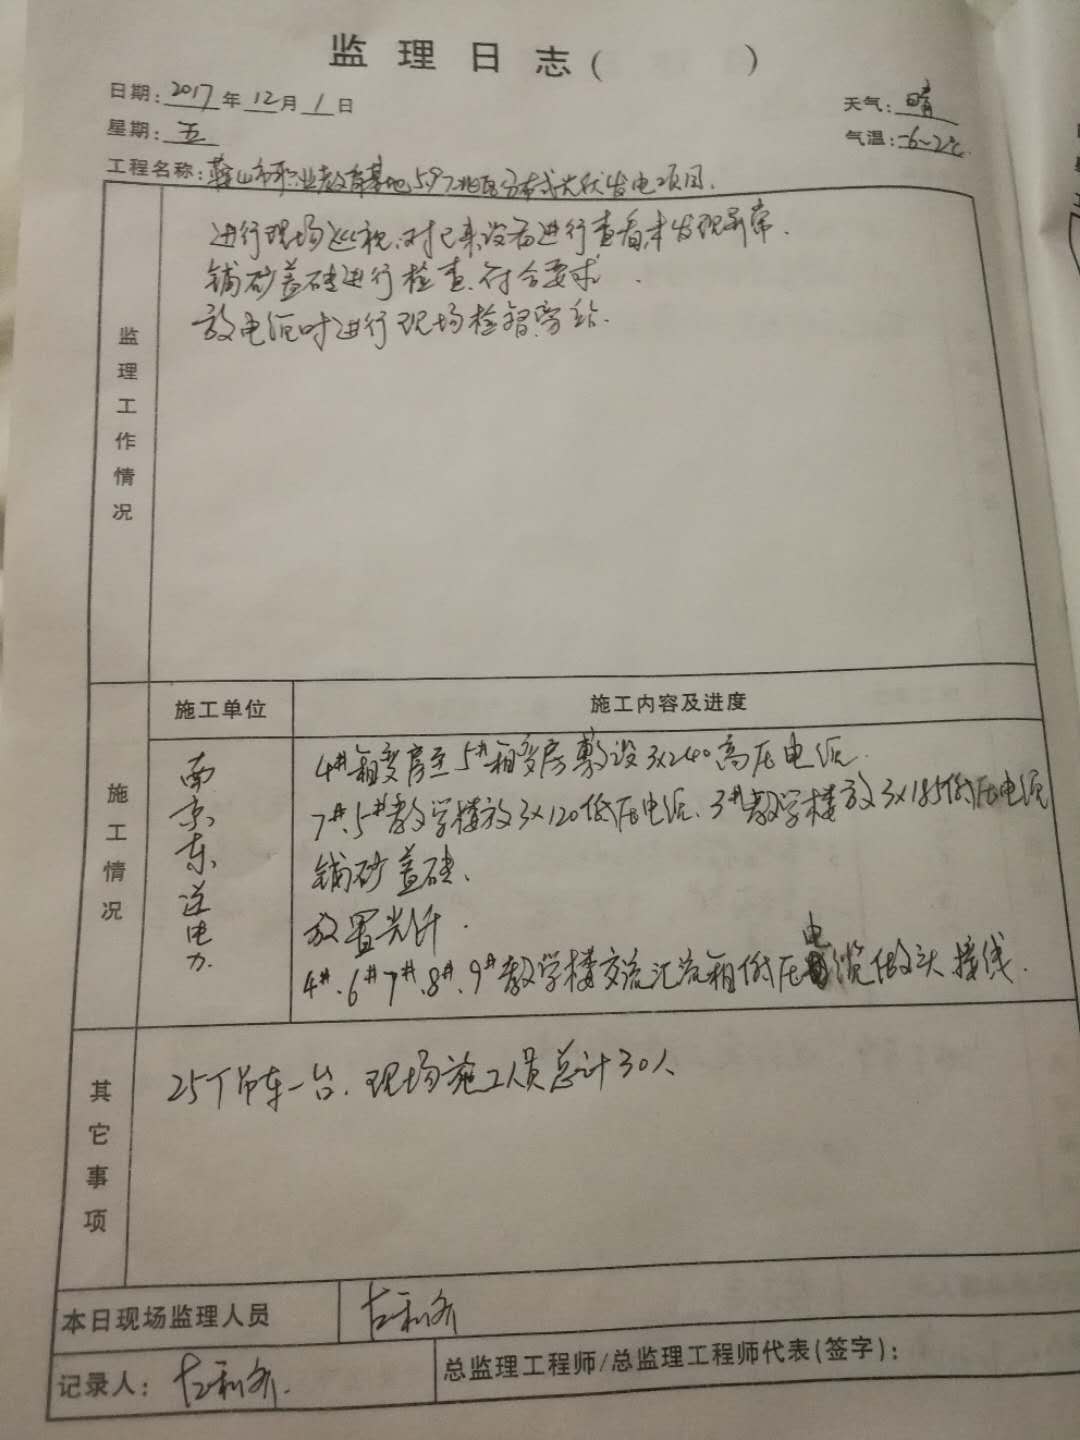 监理日志( )
日期：2017年12月1日
天气：晴
星期：五
气温：-6~2℃
工程名称：鞍山市职业教育基地5.97兆瓦分布式光伏发电项目.
监理工作情况
进行现场巡视.对已来设备进行查看未发现异常.
铺砂盖砖进行检查.符合要求.
放电缆时进行现场检督旁站.
施工情况
施工单位
施工内容及进度
南京东送电力.
4#箱变房至5#箱变房敷设3x240高压电缆.
7#.5#教学楼放3x120低压电缆.3#教学楼放3x185低压电缆
铺砂盖砖.
放置光纤.
4#.6#7#.8#.9#教学楼交流汇流箱低压电缆做头接线.
其它事项
25T吊车一台.现场施工人员总计30人
本日现场监理人员
记录人：
总监理工程师/总监理工程师代表(签字)：